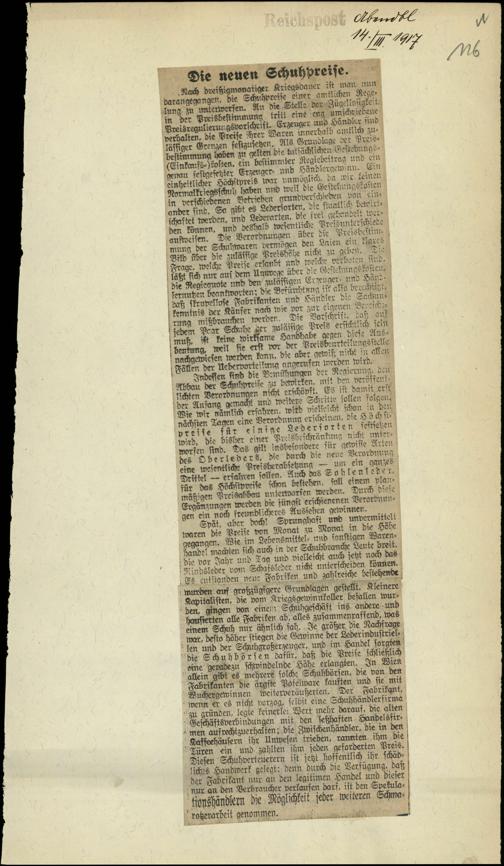 Reichspost
Abendbl
14./III 1917
N
116
Die neuen Schuhpreise.
Nach dreißigmonatiger Kriegsdauer ist man nun
darangegangen, die Schuhpreise einer amtlichen Rege-
lung zu unterwerfen. An die Stelle der Zügellosigkeit
in der Preisbestimmung tritt eine eng umschriebene
Preisregulierungsvorschrift. Erzeuger und Händler sind
verhalten, die Preise ihrer Waren innerhalb amtlich zu-
lässiger Grenzen festzusetzen. Als Grundlage der Preis-
bestimmung haben zu gelten die tatsächlichen Gestehungs-
(Einkaufs-)kosten, ein bestimmter Regiebeitrag und ein
genau festgesetzter Erzeuger- und Händlergewinn. Ein
einheitlicher Höchstpreis war unmöglich, da wir keinen
Normalkriegsschuh haben und weil die Gestehungskosten
in verschiedenen Betrieben grundverschieden von ein-
ander sind. So gibt es Ledersorten, die staatlich bewirt-
schaftet werden, und Lederarten, die frei gehandelt wer-
den können, und deshalb wesentliche Preisunterschiede
aufweisen. Die Verordnungen über die Preisbestim-
mung der Schuhwaren vermögen den Laien ein klares
Bild über die zulässige Preishöhe nicht zu geben. Die
Frage, welche Preise erlaubt und welche verboten sind,
läßt sich nur auf dem Umwege über die Gestehungskosten,
die Regiequote und den zulässigen Erzeuger- und Händ-
lernutzen beantworten; die Befürchtung ist also berechtigt,
daß skrupellose Fabrikanten und Händler die Sachun-
kenntnis der Käufer nach wie vor zur eigenen Bereiche-
rung mißbrauchen werden. Die Vorschrift, daß auf
jedem Paar Schuhe der zulässige Preis ersichtlich sein
muß, ist keine wirksame Handhabe gegen diese Aus-
beutung, weil sie erst vor der Preisbeurteilungsstelle
nachgewiesen werden kann, die aber gewiß nicht in allen
Fällen der Uebervorteilung angerufen werden wird.
Indessen sind die Bemühungen der Regierung, den
Abbau der Schuhpreise zu bewirken, mit den veröffent-
lichten Verordnungen nicht erschöpft. Es ist damit erst
der Anfang gemacht und weitere Schritte sollen folgen.
Wie wir nämlich erfahren, wird vielleicht schon in den
nächsten Tagen eine Verordnung erscheinen, die Höchst-
preise für einige Ledersorten festsetzen
wird, die bisher einer Preisbeschränkung nicht unter-
worfen sind. Das gilt insbesondere für gewisse Arten
des Oberleders, die durch die neue Verordnung
eine wesentliche Preisherabsetzung — um ein ganzes
Drittel — erfahren sollen. Auch das Sohlenleder,
für das Höchstpreise schon bestehen, soll einem plan-
mäßigen Preisabbau unterworfen werden. Durch diese
Ergänzungen werden die jüngst erschienenen Verordnun-
gen ein noch freundlicheres Aussehen gewinnen.
Spät, aber doch! Sprunghaft und unvermittelt
waren die Preise von Monat zu Monat in die Höhe
gegangen. Wie im Lebensmittel- und sonstigen Waren-
handel machten sich auch in der Schuhbranche Leute breit,
die vor Jahr und Tag und vielleicht auch jetzt noch das
Rindsleder vom Schafsleder nicht unterscheiden können.
Es entstanden neue Fabriken und zahlreiche bestehende
wurden auf großzügigere Grundlagen gestellt. Kleinere
Kapitalisten, die vom Kriegsgewinnkoller befallen wur-
den, gingen von einem Schuhgeschäft ins andere und
hausierten alle Fabriken ab, alles zusammenraffend, was
einem Schuh nur ähnlich sah. Je größer die Nachfrage
war, desto höher stiegen die Gewinne der Lederindustriel-
len und der Schuhgroßerzeuger, und im Handel sorgten
die Schuhbörsen dafür, daß die Preise schließlich
eine geradezu schwindelnde Höhe erlangten. In Wien
allein gibt es mehrere solche Schuhbörsen, die von den
Fabrikanten die ärgste Pofelware kauften und sie mit
Wuchergewinnen weiterveräußerten. Der Fabrikant,
wenn er es nicht vorzog, selbst eine Schuhhändlerfirma
zu gründen, legte keinerlei Wert mehr darauf, die alten
Geschäftsverbindungen mit den seßhaften Handelsfir-
men aufrechtzuerhalten; die Zwischenhändler, die in den
Kaffeehäusern ihr Unwesen trieben, rannten ihm die
Türen ein und zahlten ihm jeden geforderten Preis.
Diesen Schuhverteuerern ist jetzt hoffentlich ihr schäd-
liches Handwerk gelegt; denn durch die Verfügung, daß
der Fabrikant nur an den legitimen Handel und dieser
nur an den Verbraucher verkaufen darf, ist den Spekula-
tionshändlern die Möglichkeit jeder weiteren Schma-
rotzerarbeit genommen.